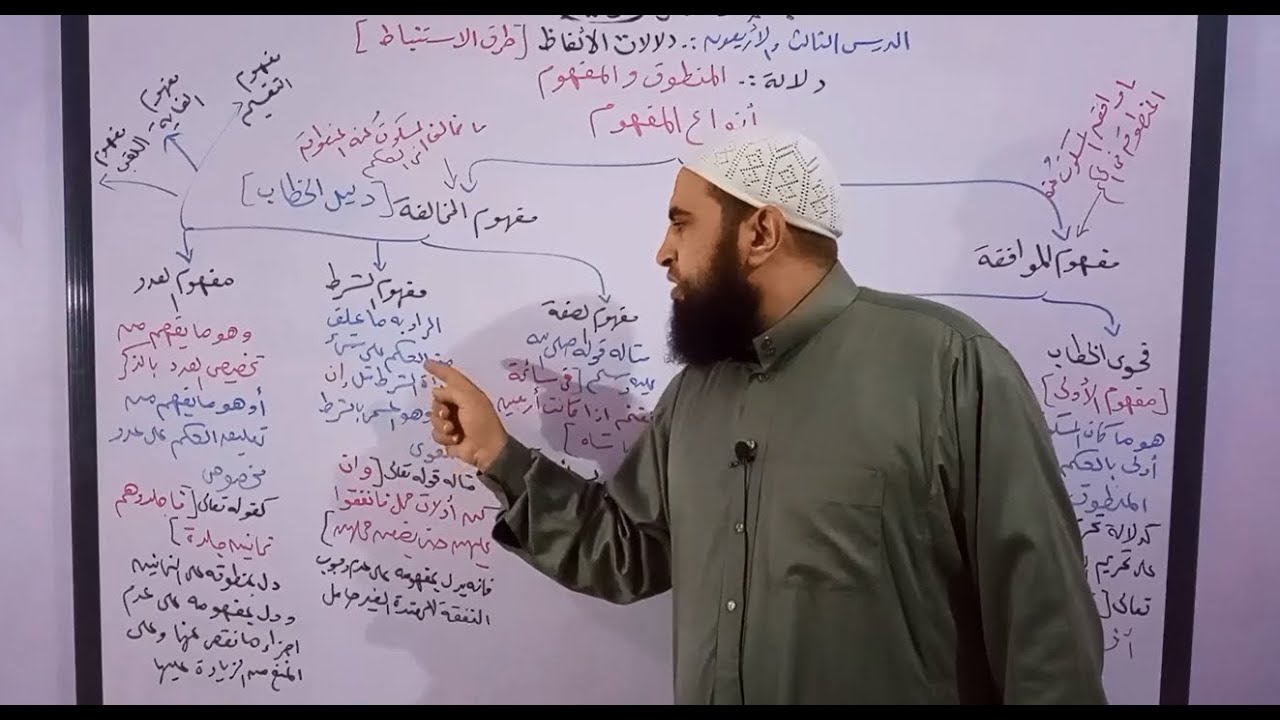 الدرس الثالث والأربعون :. دلالات الألفاظ [طرق الاستنباط]
دلالة :. المنطوق والمفهوم
أنواع المفهوم
ما وافق المسكوت عنه
المنطوق في الحكم
مفهوم الموافقة
فحوى الخطاب
[مفهوم الأولى]
هو ما كان المسكو
أولى بالحكم
المنطوق
كدلالة تحر
على تحريم
تعالى [
ما خالف المسكوت عنه المنطوق
في الحكم
مفهوم المخالفة [دليل الخطاب]
مفهوم الصفة
مثاله قوله صلى الله
عليه وسلم [في سائمة
الغنم اذا كانت أربعين
شاة]
مفهوم الشرط
المراد به ما علق
الحكم على شيء
أداة الشرط مثل إن
وهو المسمى بالشرط
اللغوي
مثاله قوله تعالى [وان
كن أولات حمل فانفقوا
عليهن حتى يضعن حملهن]
فانه يدل بمفهومه على عدم وجوب
النفقة للمعتدة الغير حامل
مفهوم العدد
وهو ما يفهم من
تخصيص العدد بالذكر
أو هو ما يفهم من
تعليق الحكم على عدد
مخصوص
كقوله تعالى [فاجلدوهم
ثمانين جلدة]
دل بمنطوقه على الثمانين
ودل بمفهومه على عدم
اجزاء ما نقص عنها وعلى
المنع من الزيادة عليها
مفهوم التقسيم
مفهوم الغاية
مفهوم اللقب